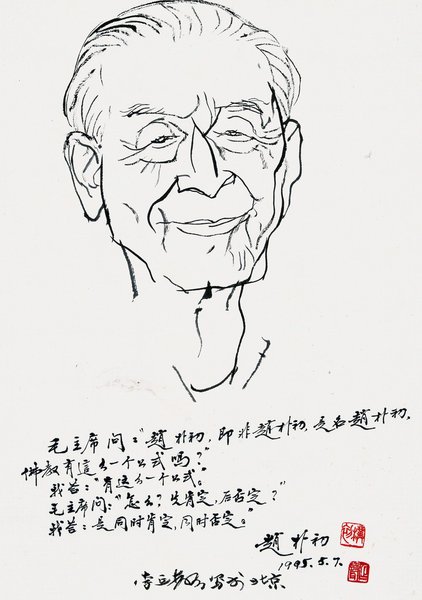 毛主席问:“趙朴初,即非趙朴初,是名趙朴初,
佛教有這么一个公式吗?”
我答:“有这么一个公式。”
毛主席问:“怎么?先肯定,后否定?”
我答:是同时肯定,同时否定。”
趙朴初
1995.5.7.
写于北京